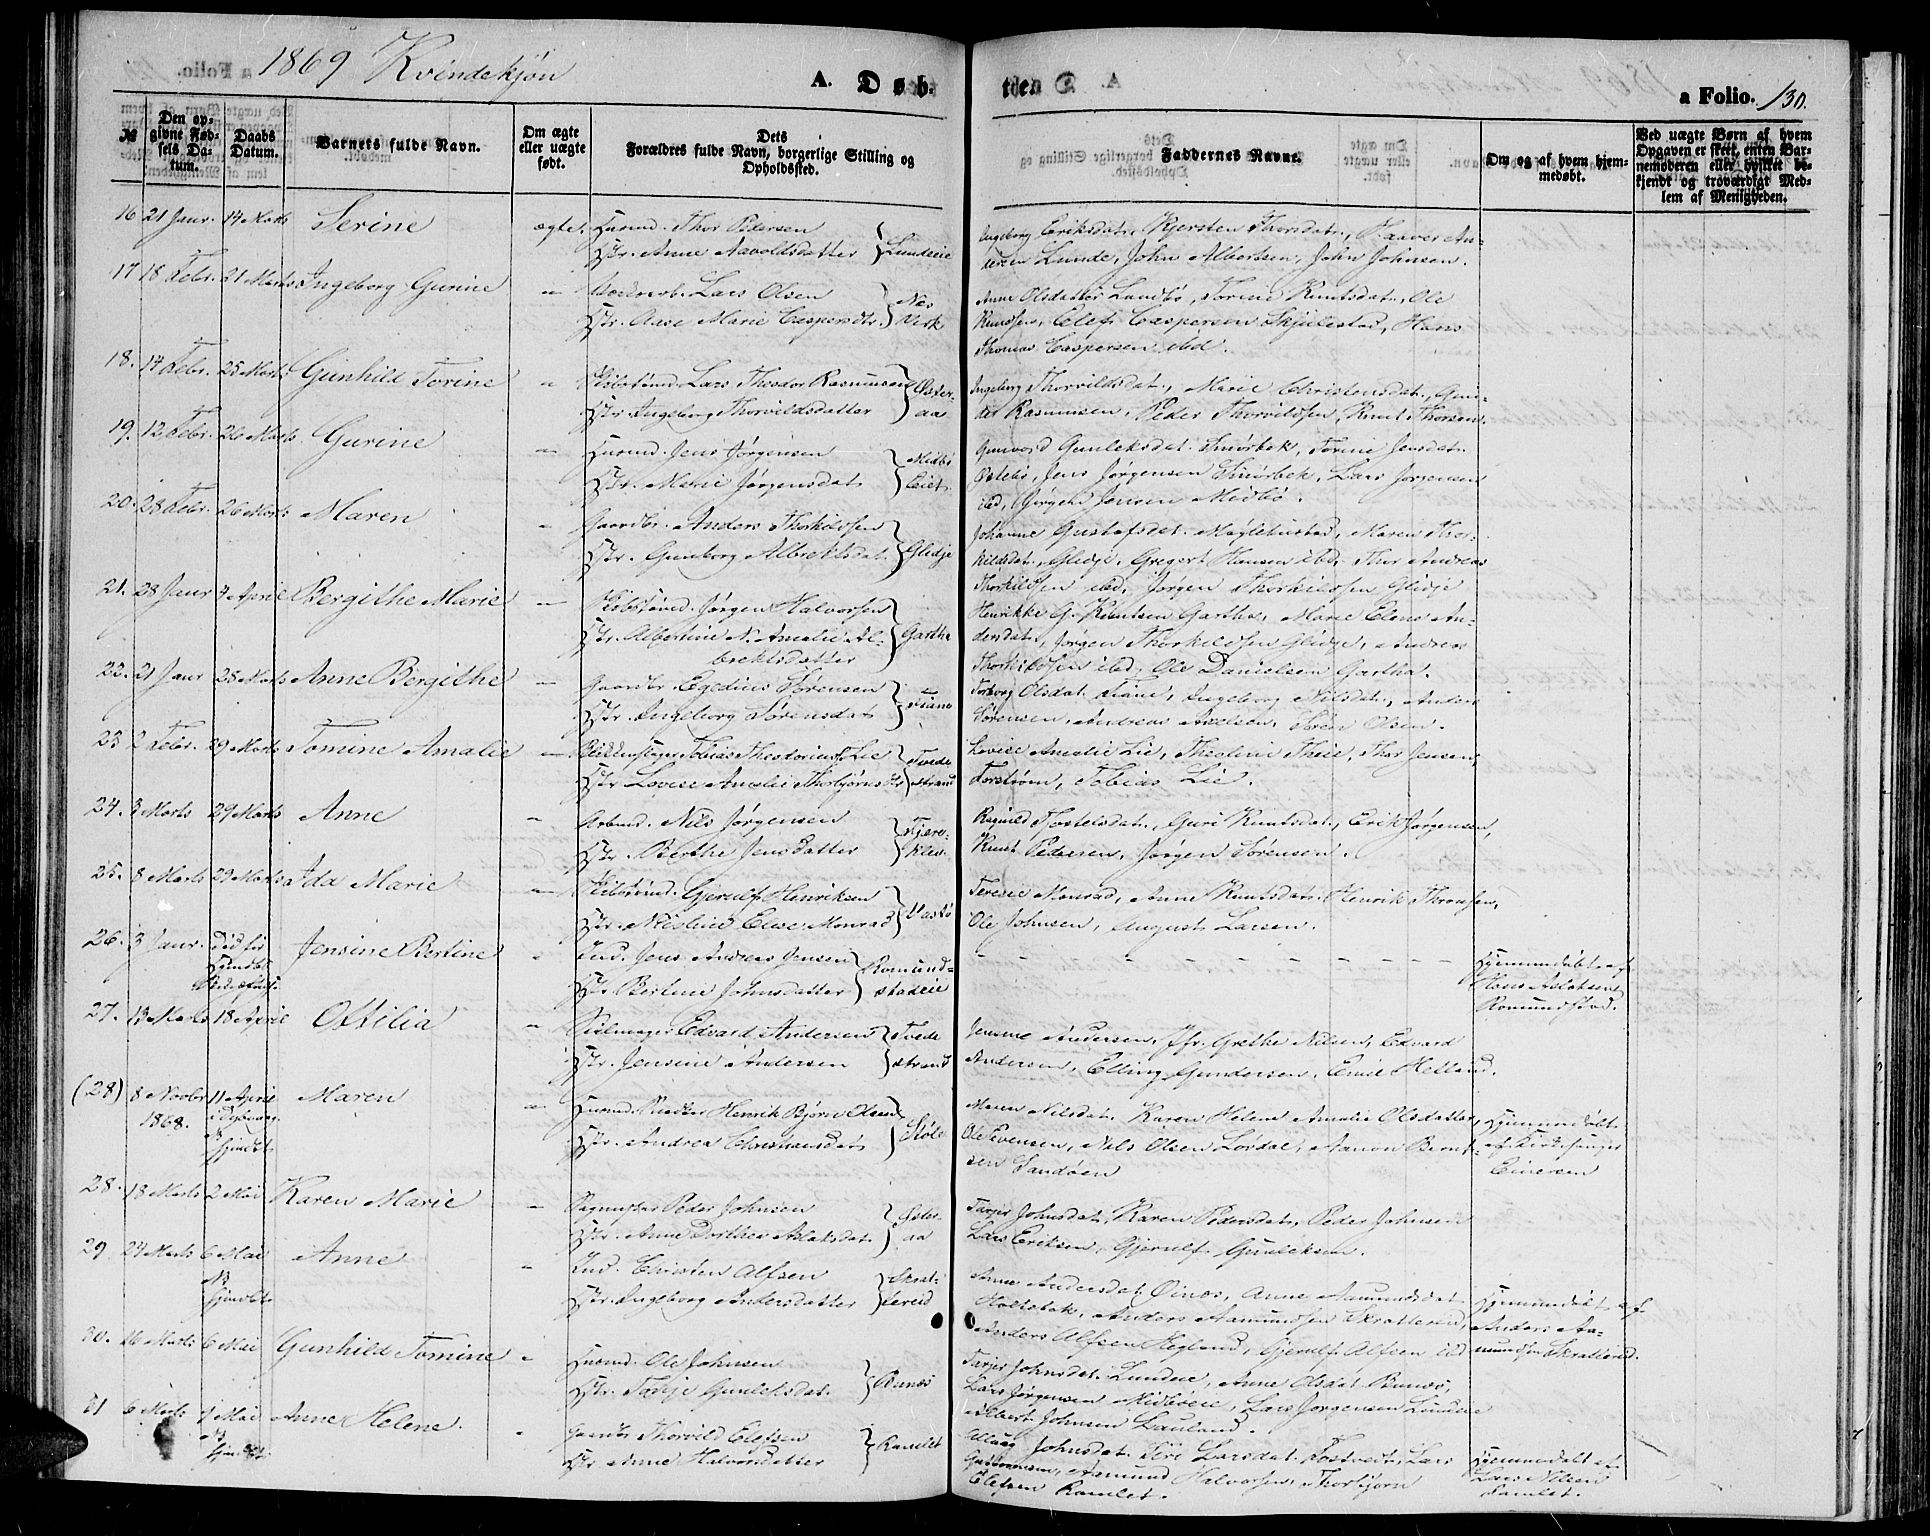 1869 Kvindekjøn
A. Døb-
ten
a Folio. 130.
№
Den op-
givne Fød-
sels Da-
tum.
Daabs
Datum.
Barnets fulde Navn.
Om ægte
eller uægte
født.
Dets
Forældres fulde Navn, borgerlige Stilling og
Opholdssted.
Faddernes Navne.
Om og af hvem hjem-
medøbt.
Ved uægte Børn af hvem
Opgaven er skeet, enten Bar-
nemoderen eller hvilket be-
kjendt og troværdigt Med-
lem af Menigheden.
16 21 Janr. 14 Marts Serine ægte. Husmd. Thor Pedersen
Hstr. Anne Aavoldsdatter Lundeeie
Ingeborg Eriksdat., Kjersten Thorsdat., Haaver An-
dersen Lunde, John Albertsen, John Johnsen.
17 18 Febr. 21 Marts Ingeborg Gurine " Lars Olsen
Hstr. Aase Marie Caspersdtr. Næs
Verk
Anne Olsdatter Lundbø, Torine Knutsdat., Ole
Knutsen, Elef Caspersen Skjulestad, Hans
Thomas Caspersen ibd.
18. 14 Febr. 25 Marts Gunhild Torine " Lars Theodor Rasmusen
Hstr. Ingeborg Thorvildsdatter Oster-
aa
Ingeborg Thorvildsdat., Marie Christensdat., Gun-
der Rasmussen, Peder Thorvildsen, Knut Thorsen.
19. 12 Febr. 26 Marts Gurine " Husmd. Jens Jørgensen
Hstr. Marie Jørgensdat. Midbø
Eiet.
Gunvord Gunleksdat. Smørbek, Torine Jensdat.
Jens Jørgensen Smørbek, Lars Jørgensen
ibd, Jørgen Jensen Midbø.
20. 28 Febr. 26 Marts Maren " Gaardbr. Anders Thorkildsen
Hstr. Gunborg Albrektsdat. Glidje
Johanne Gustafsdat. Maren Thor-
kildsdat. Glidje, Gregert Hansen ibd, Thor Andreas
Thorkildsen ibd, Jørgen Thorkildsen Glidje
21. 28 Janr 4 April Bergithe Marie " Jørgen Halvorsen
Hstr. Albertine N. Amalie Al-
brektsdatter Gartha
Henrikke G. Knutsen Gartha, Marie Elene An-
dersdat., Jørgen Thorkildsen Glidje, Andreas
Thorkildsen ibd, Ole Danielsen Gartha.
22. 21 Janr 25 Marts Anne Bergithe " Gaardbr. Egedius Sørensen
Hstr. Ingeborg Sørensdat. Fiane
Torborg Olsdat. Fiane, Ingeborg Nilsdat., Anders
Sørensen, Andreas Axelsen, Søren Olsen.
23 2 Febr. 29 Marts Tomine Amalie " Tobias Theodorius Lie
Hstr. Lovise Amalie Thorbjørnsdtr Tvede
strand
Lovise Amalie Lie, Theoline Theie, Thor Jensen
Torstrøm, Tobias Lie.
24. 3 Marts 29 Marts Anne " Arbmd. Nils Jørgensen
Hstr. Berthe Jensdatter Kjere-
klev
Ragnild Torkelsdat., Guri Knutsdat., Erik Jørgensen,
Knut Pedersen, Jørgen Sørensen.
25. 8 Marts 29 Marts Ida Marie " Gjerulf Henriksen
Hstr. Elise Monrad Vastø
Terese Monrad, Anne Knutsdat. Henrik Thronsen,
Ole Johnsen, August Larsen.
26. 3 Janr. død før
Jensine Bertine " Ind. Jens Andreas Jensen
Hstr. Bertine Johnsdatter Romund-
stadeie
Hjemmedøbt af
Hans Aslaksen
Romundstad.
27. 13 Marts 18 April Ottilia " Edvard Andersen
Hstr. Jensine Andersen Tvede
strand
Jensine Andersen, Jfr. Grethe Nilsen, Edvard
Andersen, Elling Gundersen, Emil Helland.
(28) 8 Novbr
1868. 11 April
Maren " Husmd. Henrik Bjørn Olsen
Hstr. Andrea Christiansdat. Støle
Maren Nilsdat. Karen Helene Amalie Olsdatter,
Ole Evensen, Nils Olsen Lordal, Aanon Bernt-
sen Sandøen
Hjemmedøbt
af Kirkesanger
Einersen
28. 18 Marts 2 Mai Karen Marie " Peder Johnsen
Hstr. Anne Dorthea Aslaksdat. Oster-
aa
Tarjer Johnsdat., Karen Pedersdat., Peder Johnsen
Lars Eriksen, Gjerulf Gunleksen.
29. 24 Marts 6 Mai
Anne " Ind. Christen Alfsen
Hstr. Ingeborg Andersdatter Skrat-
tereid
Anne Andersdat. Øinæs, Anne Aamundsdat.
Holtebek, Anders Aamundsen Skrattereid,
Anders Alfsen Hegland, Gjerulf Alfsen ibd
Hjemmedøbt af
Anders Aa-
mundsen Skrattereid.
30. 16 Marts 6 Mai Gunhild Tomine " Husmd. Ole Johnsen
Hstr. Tarje Gunleksdat. Bunæs
Tarjer Johnsdat. Lundeie, Anne Olsdat. Bunæs,
Lars Jørgensen Midbøeie, Lars Jørgensen Lundeie
Albert Johnsen Lauland.
31 6 Marts 7 Mai
Anne Helene. " Gaardbr Thorvild Elefsen
Hstr Anne Halvorsdatter Ramlet
Johnsdat. Siri Larsdat. Fostvedt, Lars
Aamund Halvorsen, Thorbjørn
Elefsen Ramlet.
Hjemmedøbt af
Lars Nilsen
Ramlet.